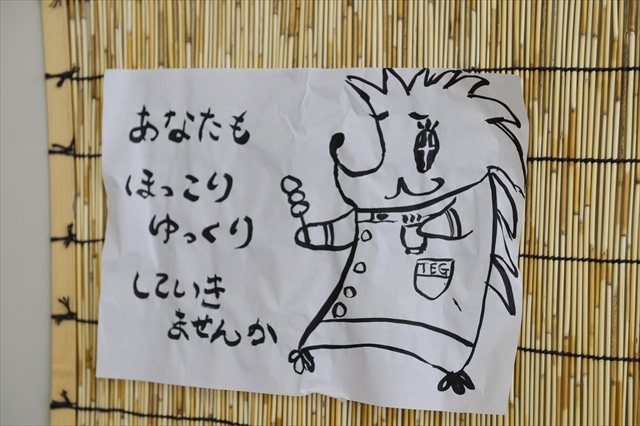 あなたも
ほっこり
ゆっくり
していき
ませんか
TEG